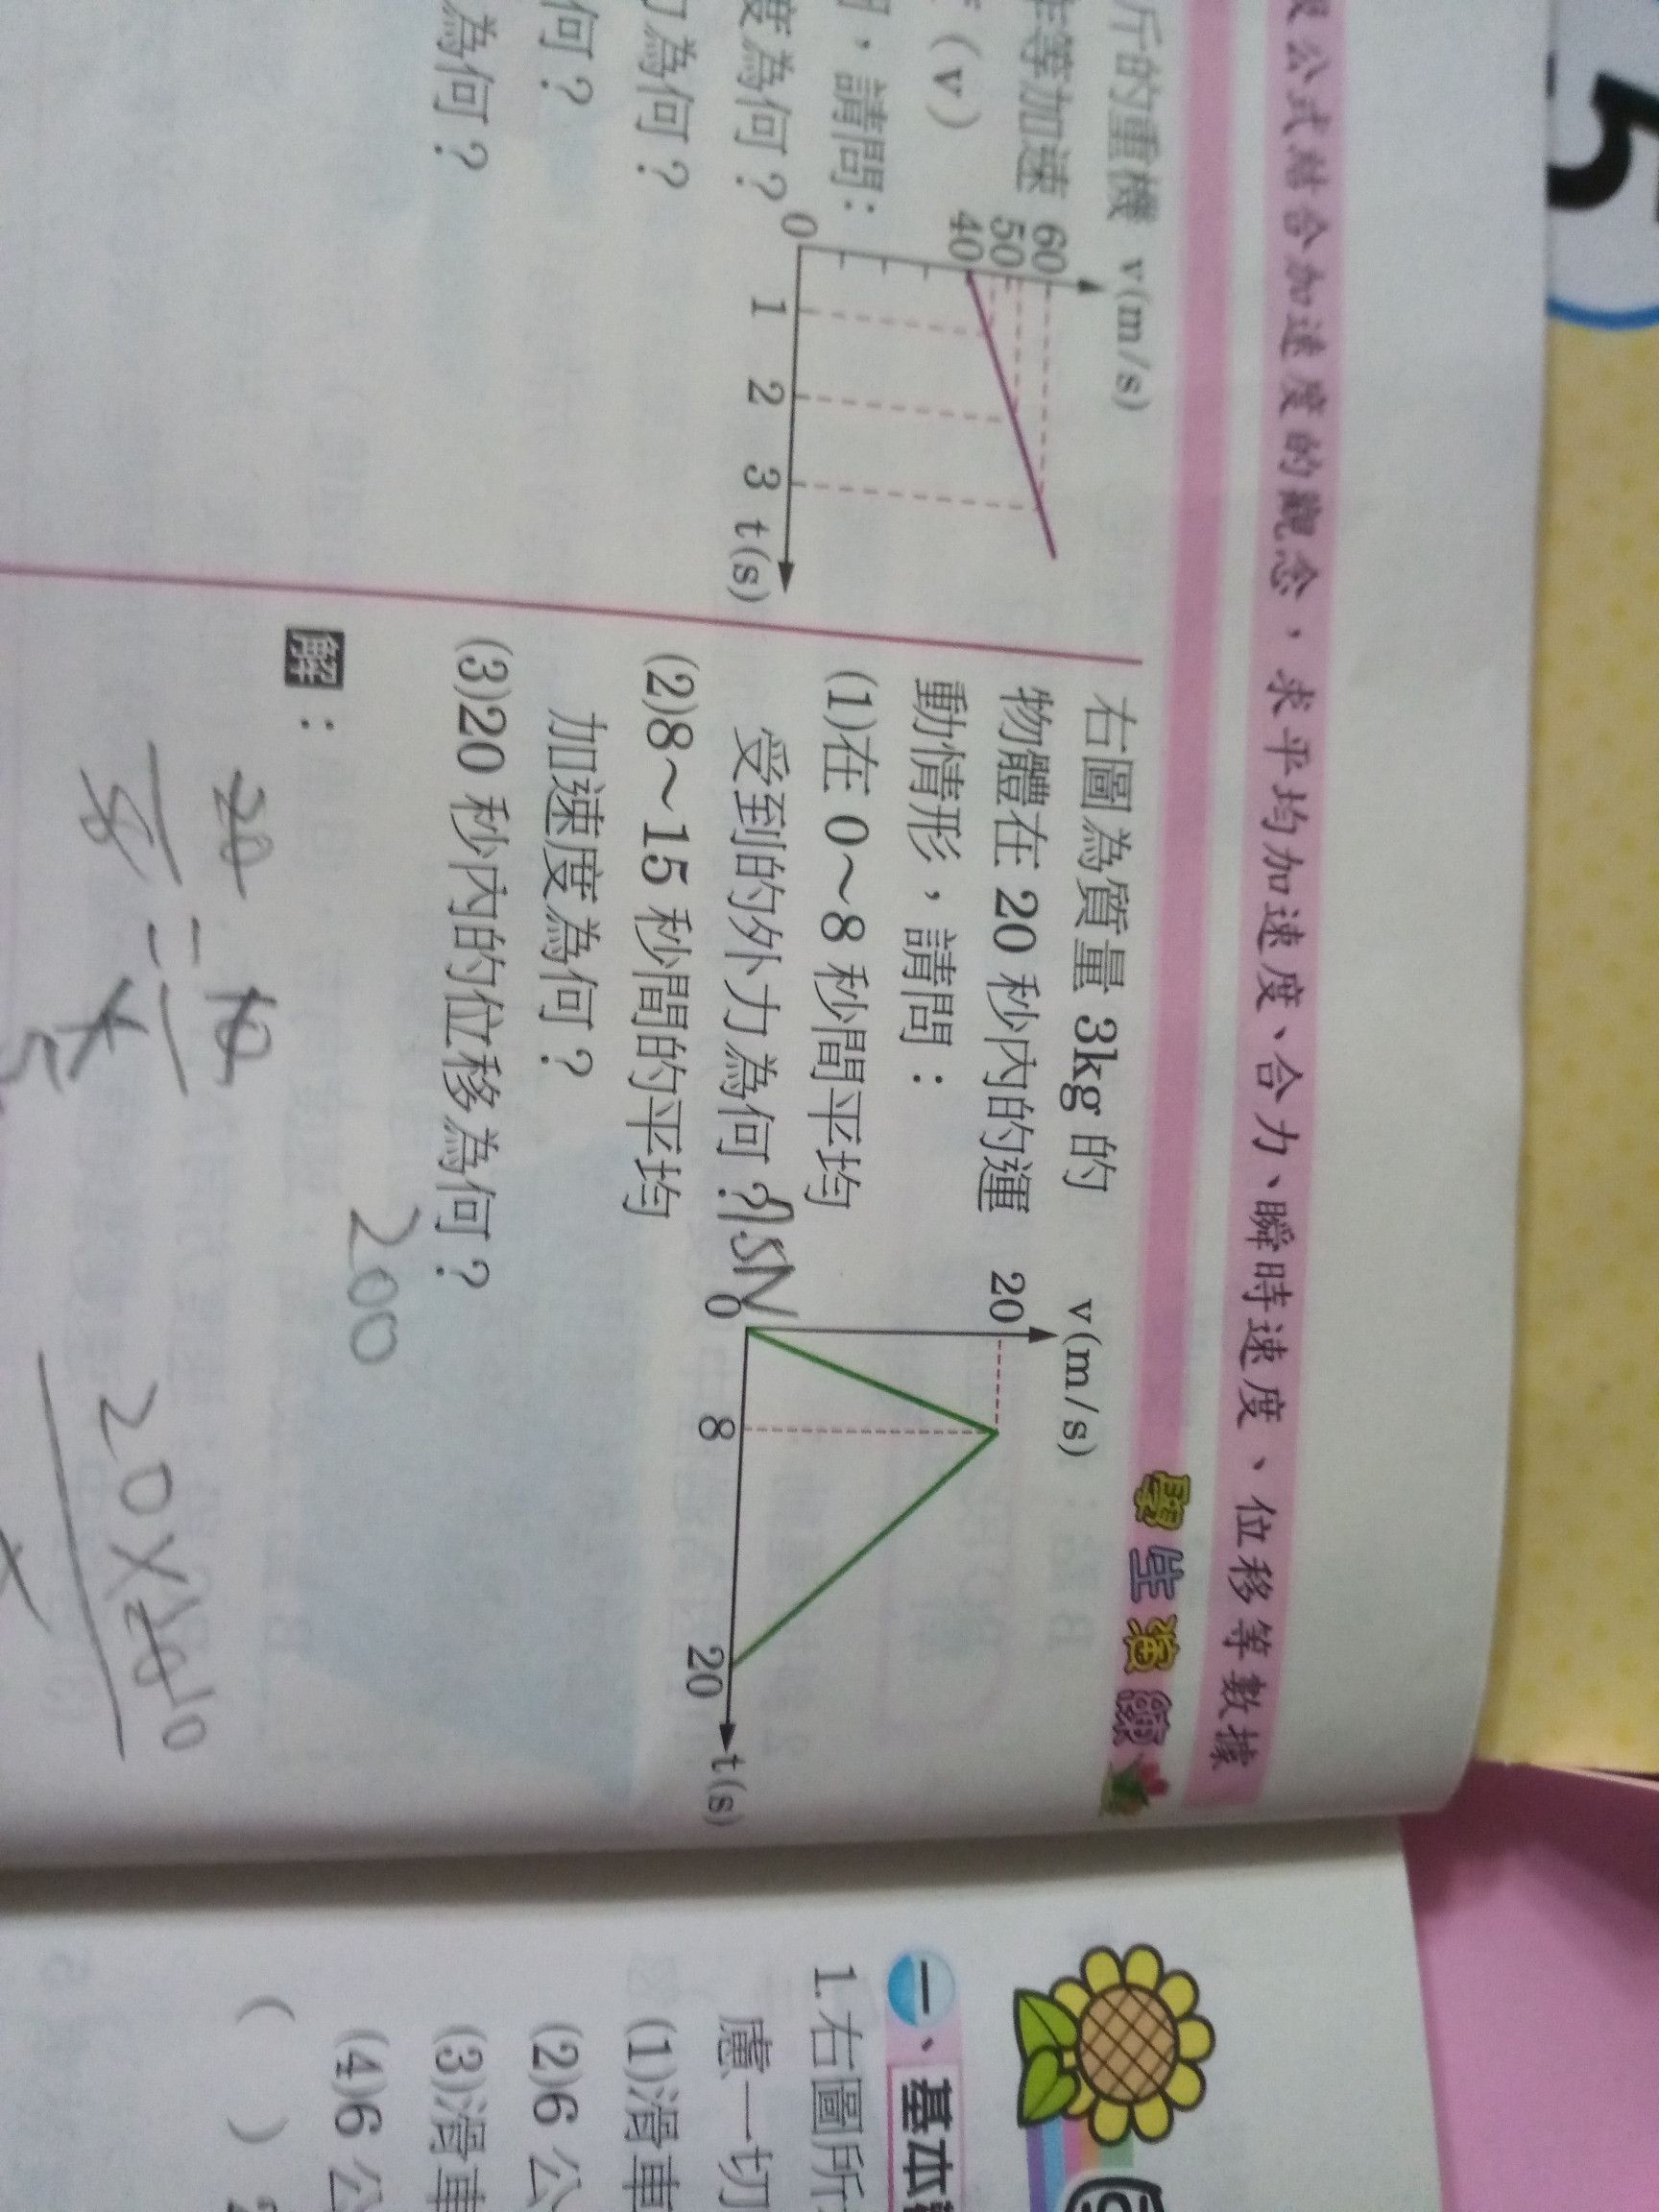 公式結合加速度的觀念，求平均加速度、合力、瞬時速度、位移等數據
學生演練
斤的重機
等加速
(v)
，請問：
度為何？
為何？
何？
為何？
v(m/s)
60
50
40
0
1
2
3
t(s)
右圖為質量 3kg 的
物體在 20 秒內的運
動情形，請問：
(1)在 0～8 秒間平均
受到的外力為何？
(2)8～15 秒間的平均
加速度為何？
(3)20 秒內的位移為何？
200
v(m/s)
20
0
8
20
t(s)
解：
20
8
5
10
5
一、基本
1.右圖所
慮一切
(1)滑車
(2)6 公
(3)滑車
(4)6 公
(　)2